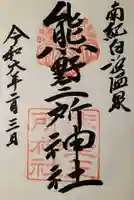 南紀白浜温泉
熊野三所神社
令和六年二月三日